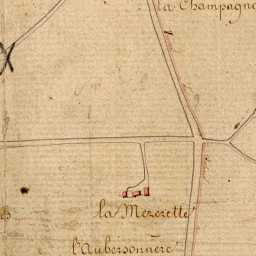 la Champagne
la Mezerette
l'Aubersonnière